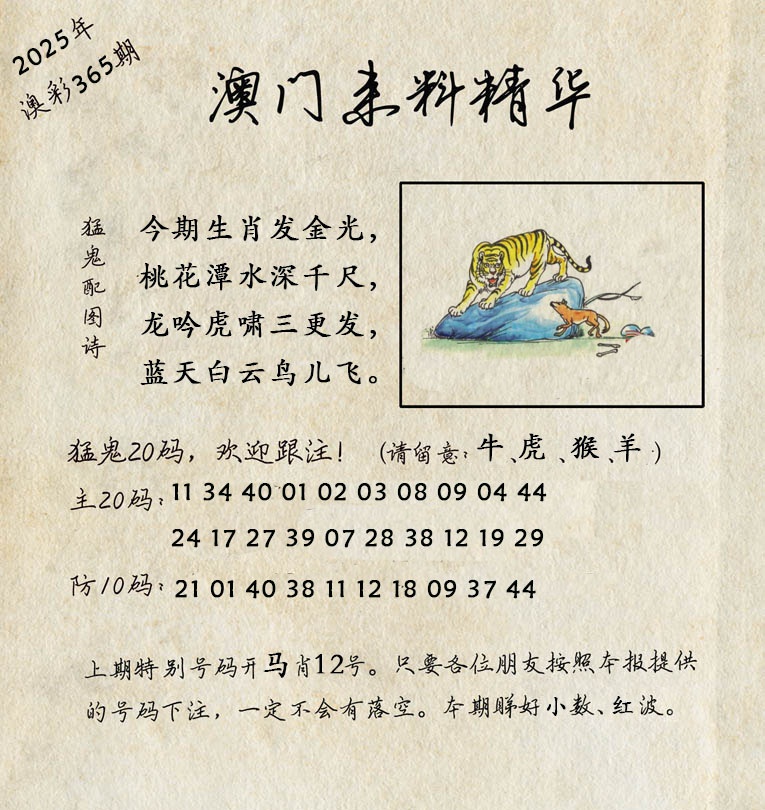 2025年
澳彩365期
澳门来料精华
猛鬼配图诗
今期生肖发金光，
桃花潭水深千尺，
龙吟虎啸三更发，
蓝天白云鸟儿飞。
猛鬼20码，欢迎跟注！（请留意：牛、虎、猴、羊）
主20码：11 34 40 01 02 03 08 09 04 44
24 17 27 39 07 28 38 12 19 29
防10码：21 01 40 38 11 12 18 09 37 44
上期特别号码开马肖12号。只要各位朋友按照本报提供
的号码下注，一定不会有落空。本期睇好小数、红波。